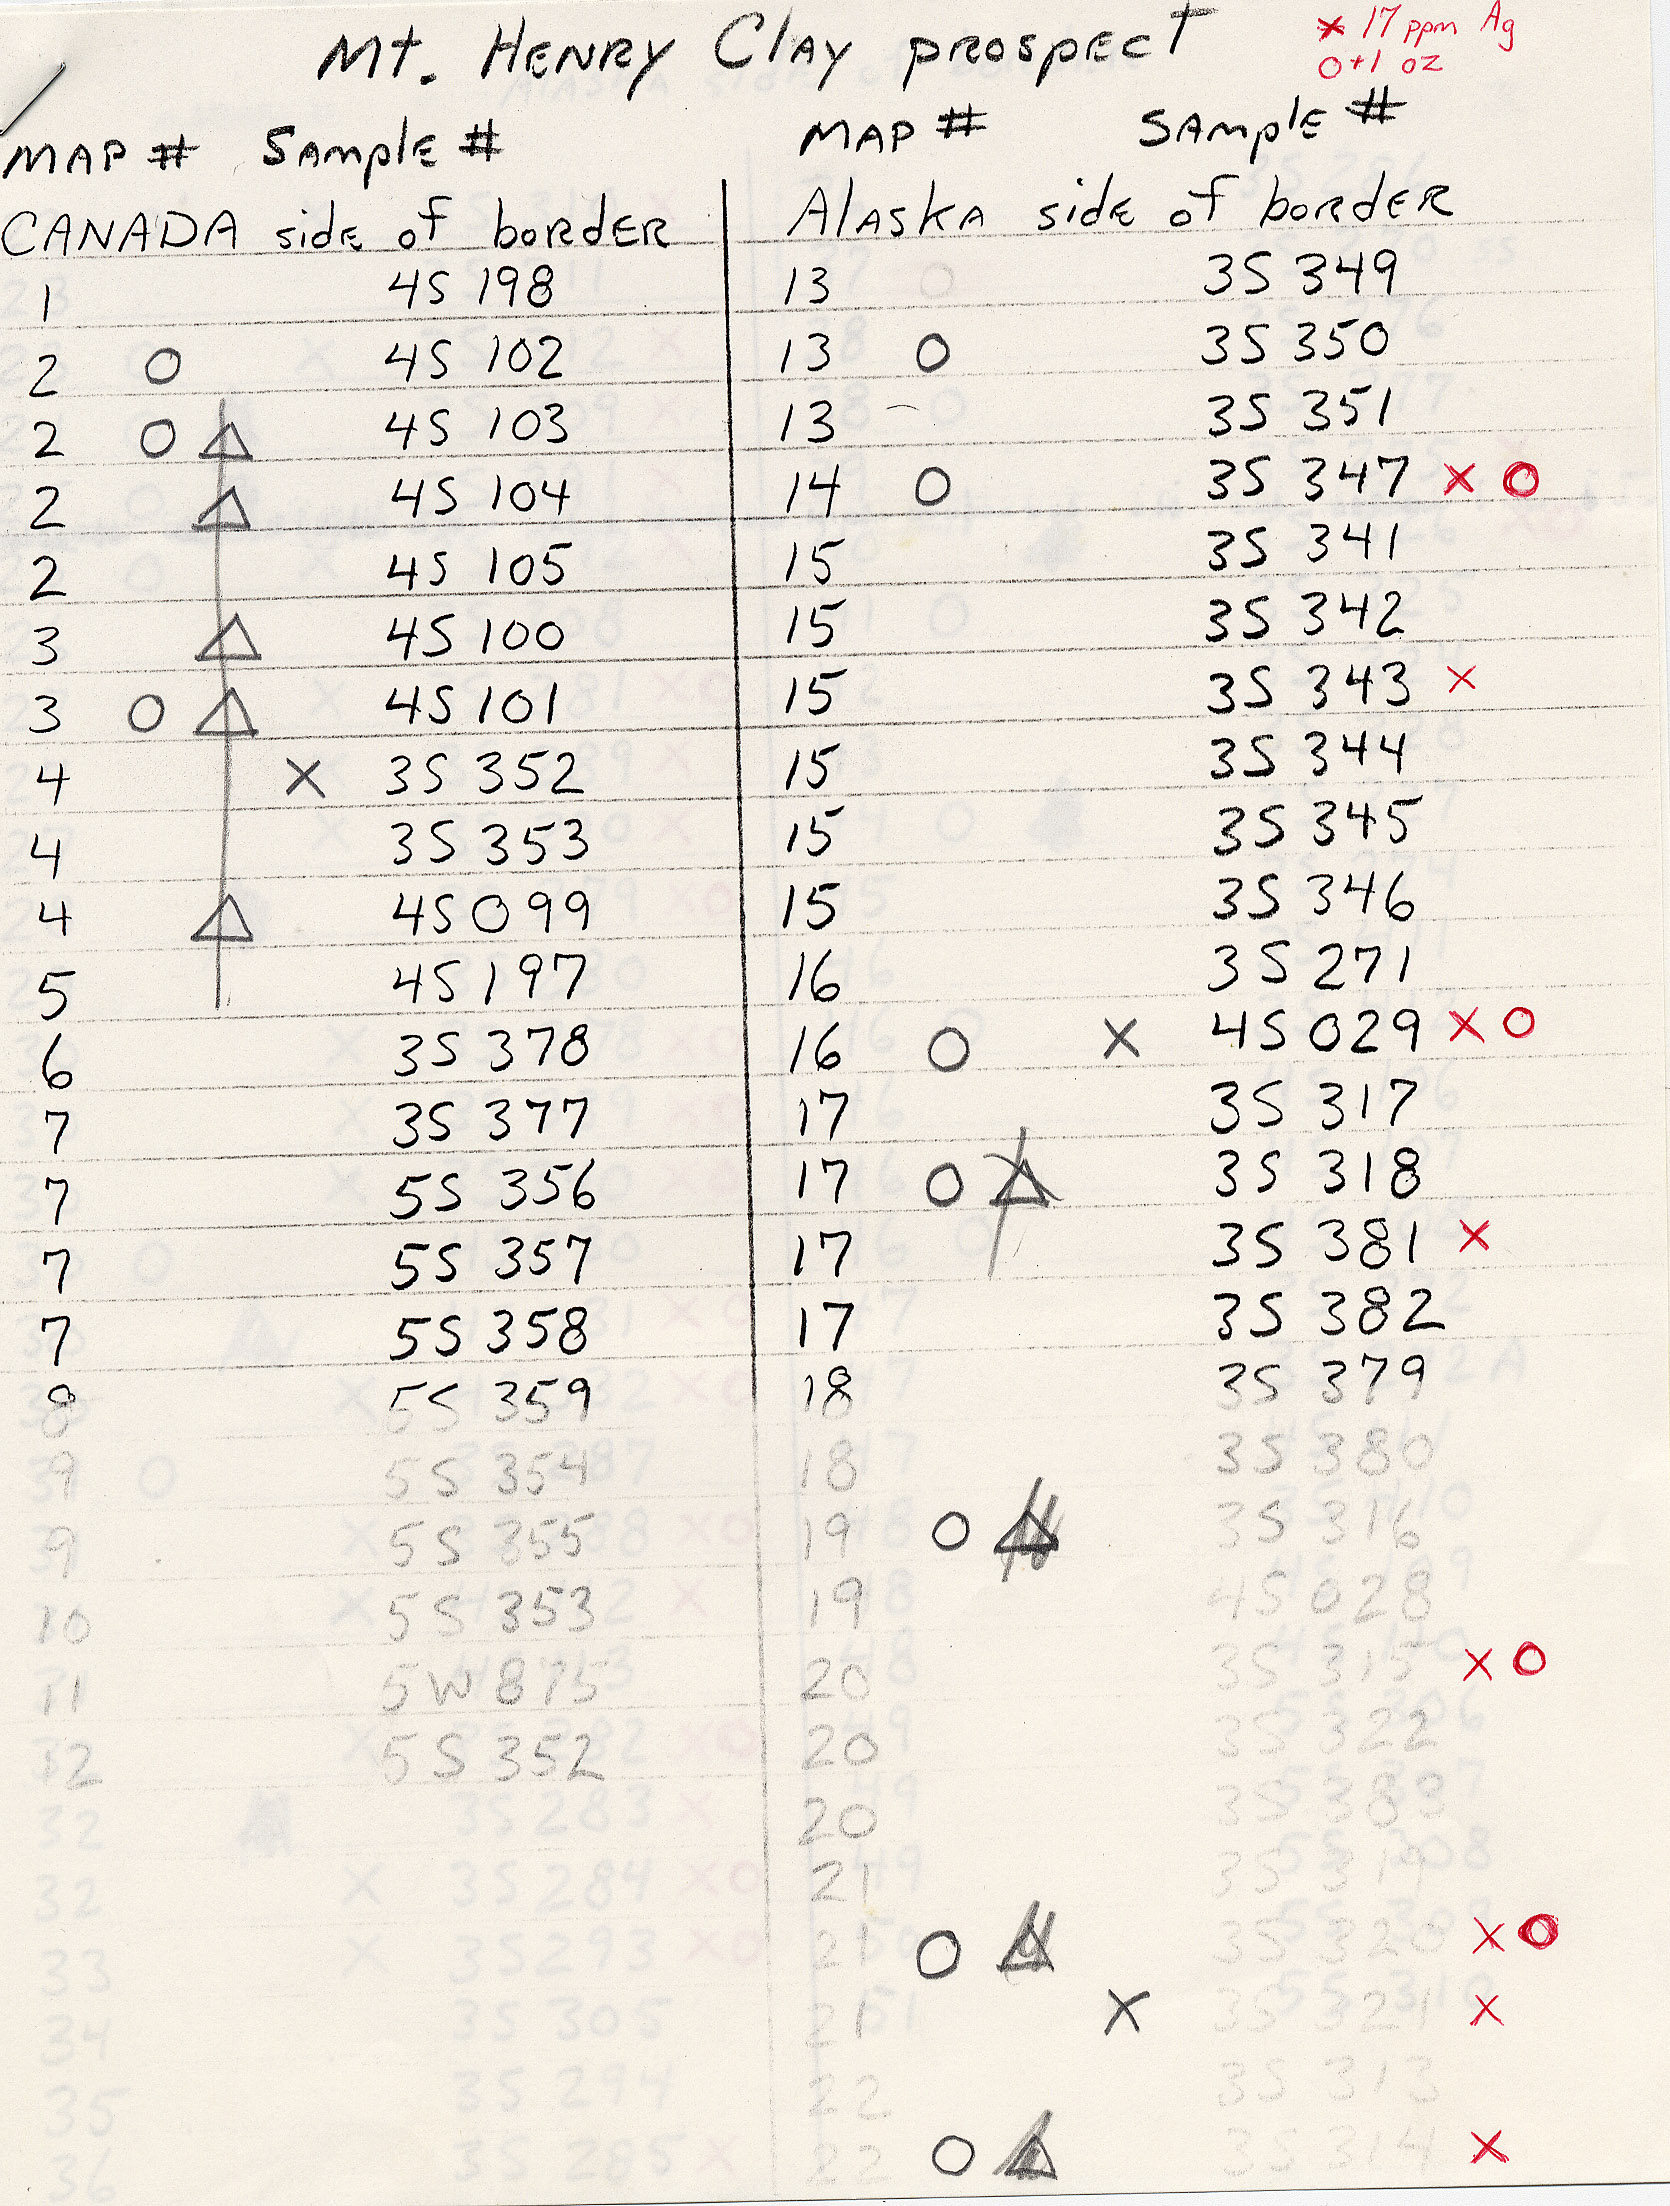 Mt. HENRY ClAy pROSpECT
x 17 ppm Ag
O +1 oz
MAP # SAmplE #
MAP # SAmplE #
CANADA sidE of boRdER
AlASkA sidE of boRdER
1 4S 198
13 3S 349
2 O 4S 102
13 O 3S 350
2 O △ 4S 103
13 3S 351
2 △ 4S 104
14 O 3S 347 x O
2 4S 105
15 3S 341
3 △ 4S 100
15 3S 342
3 O △ 4S 101
15 3S 343 x
4 X 3S 352
15 3S 344
4 3S 353
15 3S 345
4 △ 4S 099
15 3S 346
5 4S 197
16 3S 271
6 3S 378
16 O X 4S 029 x O
7 3S 377
17 3S 317
7 5S 356
17 O △ 3S 318
7 5S 357
17 3S 381 x
7 5S 358
17 3S 382
8 5S 359
18 3S 379
9 5S 354
18 3S 380
9 5S 355
19 O △ 3S 316
10 5S 353
19 4S 028
11 5W 875
20 3S 315 x O
12 5S 352
20 3S 322
20 3S
21 3S 319
21 O △ 3S 320 x O
21 X 3S 321 x
22 3S 313
22 O △ 3S 314 x